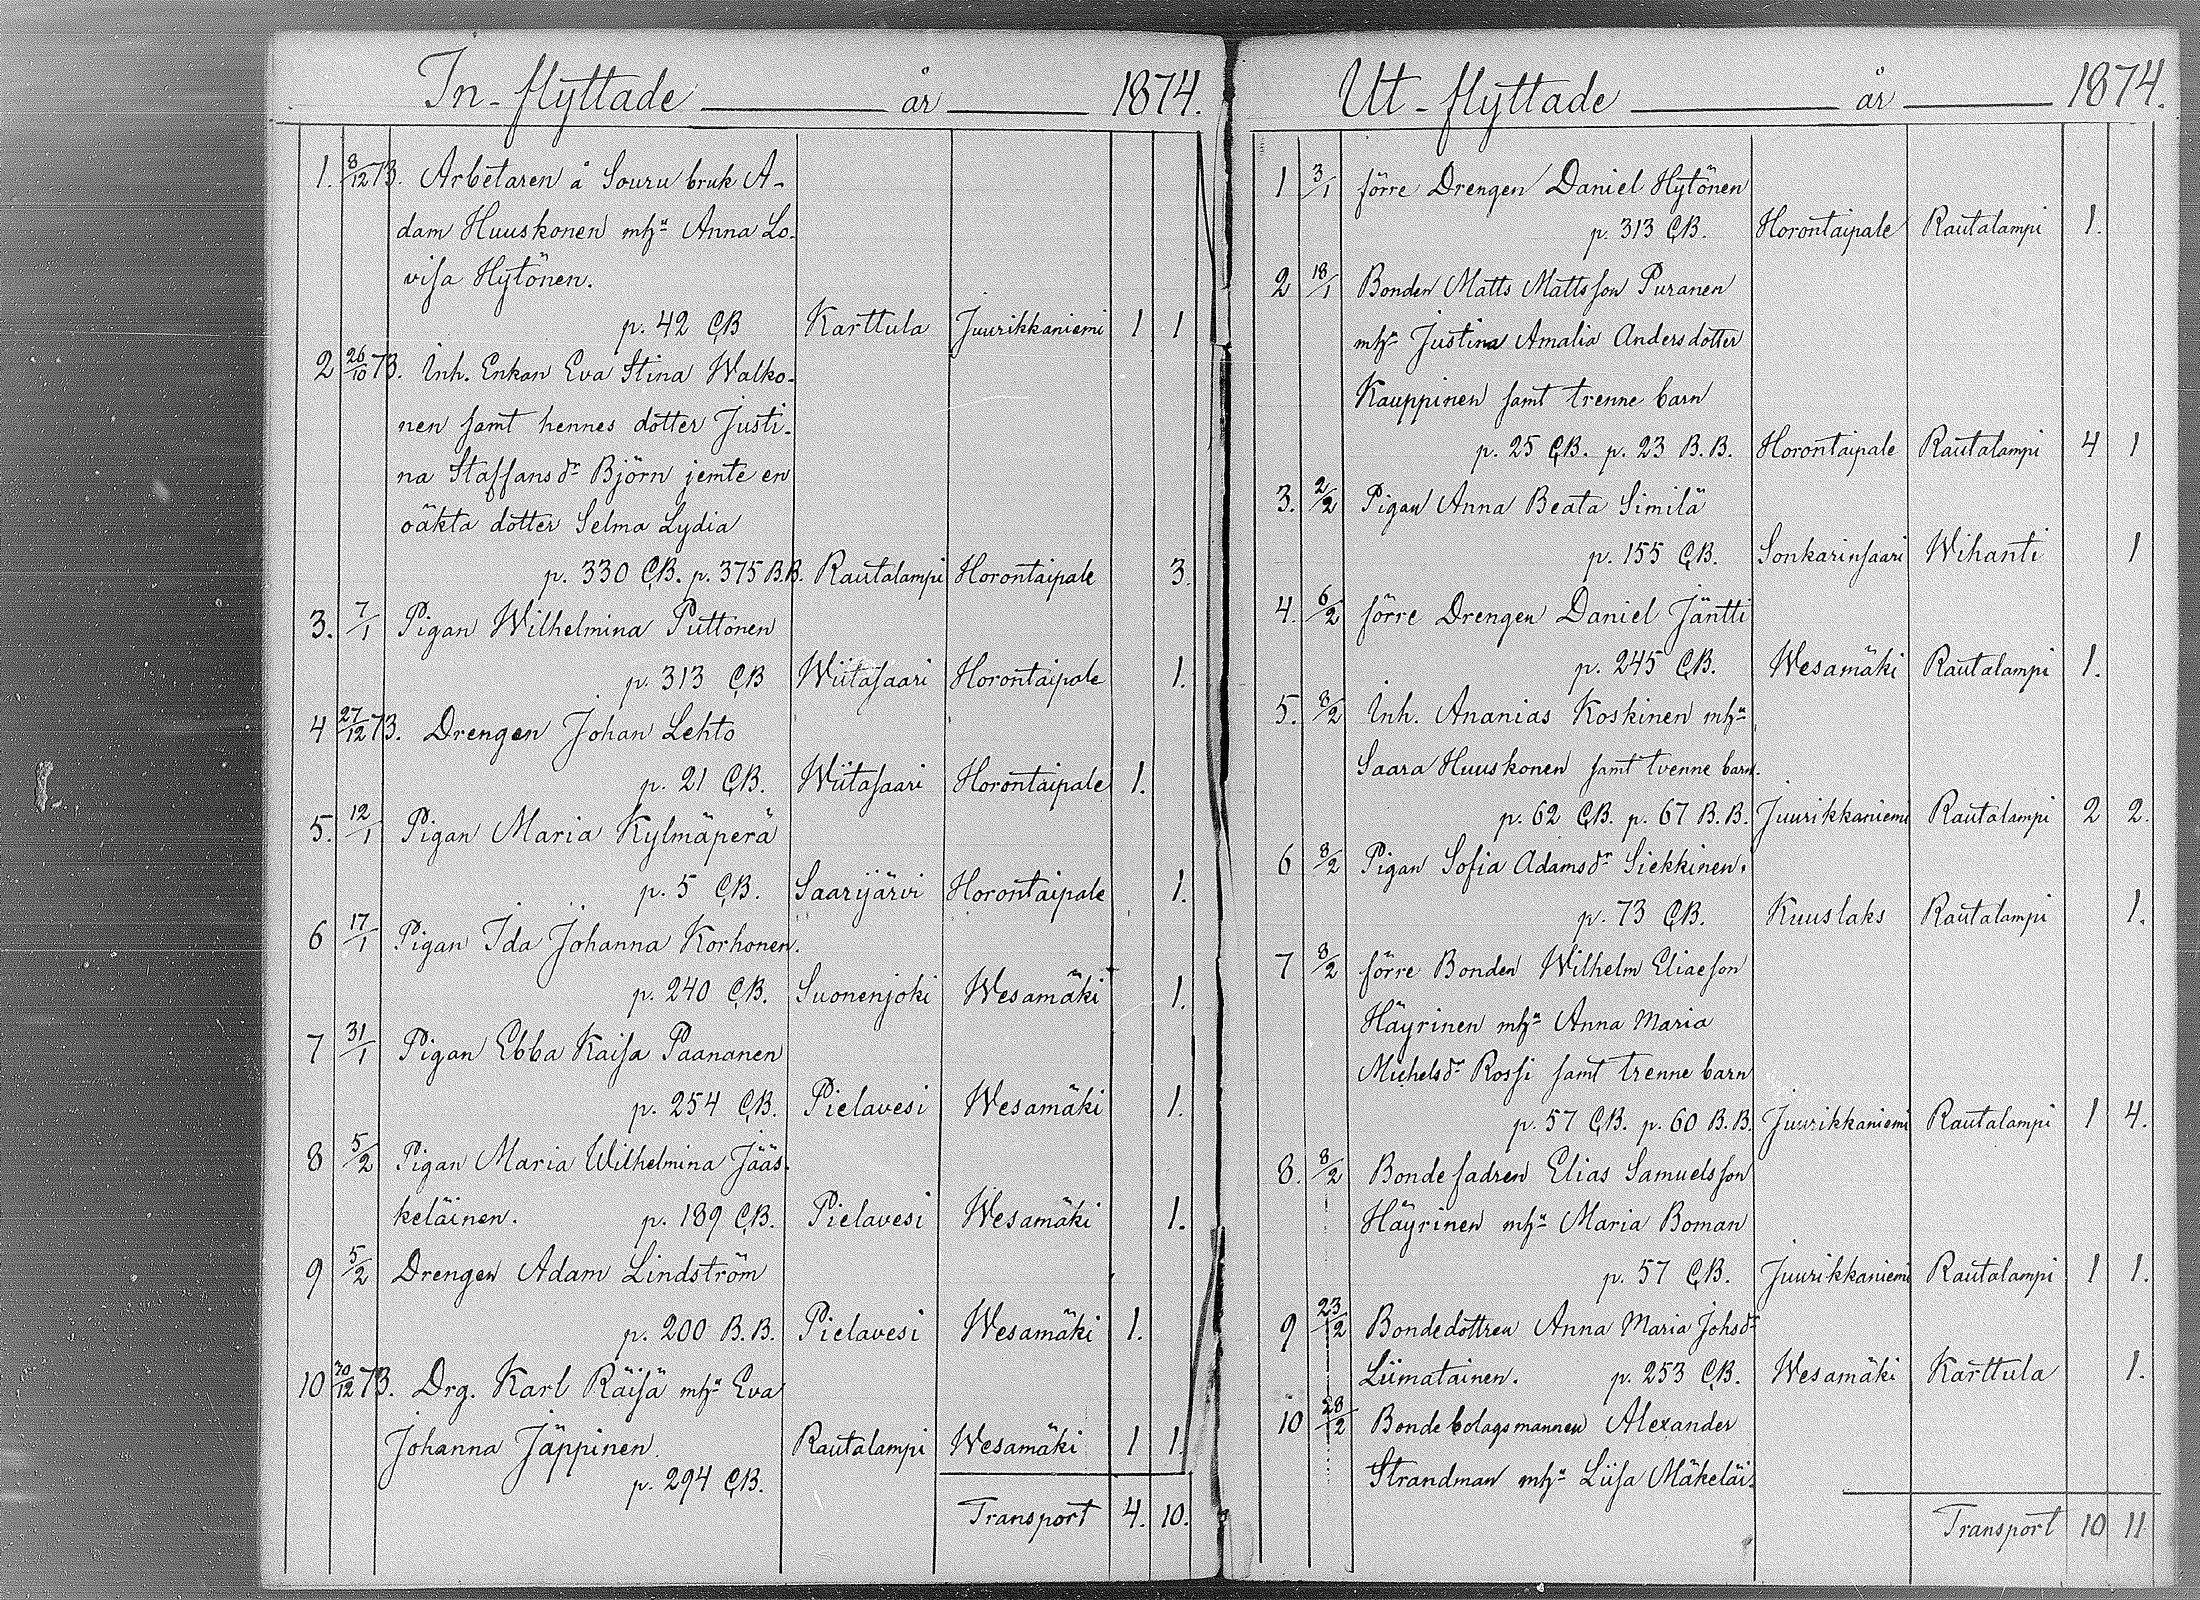 In-flyttade år 1874.
1. 8/12 73. Arbetaren å Souru bruk A-
dam Huuskonen mh:u Anna Lo-
visa Hytönen.
p. 42 C.B. Karttula Juurikkaniemi 1 1
2 26/10 73. Inh. Enkan Eva Stina Walko-
nen samt hennes dotter Justi-
na Staffansdr Björn jemte en
oäkta dotter Selma Lydia
p. 330 C.B. p. 375 B.B. Rautalampi Horontaipale 3.
3. 7/1 Pigan Wilhelmina Puttonen
p. 313 C.B. Wiitasaari Horontaipale 1.
4 27/12 73. Drengen Johan Lehto
p. 21 C.B. Wiitasaari Horontaipale 1.
5. 12/1 Pigan Maria Kylmäperä
p. 5 C.B. Saarijärvi Horontaipale 1.
6 17/1 Pigan Ida Johanna Korhonen.
p. 240 C.B. Suonenjoki Wesamäki 1.
7 31/1 Pigan Ebba Kaisa Paananen
p. 254 C.B. Pielavesi Wesamäki 1.
8 5/2 Pigan Maria Wilhelmina Jääs-
keläinen. p. 189 C.B. Pielavesi Wesamäki 1.
9 5/2 Drengen Adam Lindström
p. 200 B.B. Pielavesi Wesamäki 1.
10 30/12 73. Drg. Karl Räisä mh:u Eva
Johanna Jäppinen. Rautalampi Wesamäki 1 1.
p. 294 C.B.
Transport 4. 10.
Ut-flyttade år 1874.
1 3/1 förre Drengen Daniel Hytönen
p. 313 C.B. Horontaipale Rautalampi 1.
2 18/1 Bonden Matts Mattsson Puranen
mh:u Justina Amalia Andersdotter
Kauppinen samt trenne barn
p. 25 C.B. p. 23 B.B. Horontaipale Rautalampi 4 1
3. 2/2 Pigan Anna Beata Similä
p. 155 C.B. Sonkarinsaari Wihanti 1
4. 6/2 förre Drengen Daniel Jäntti
p. 245 C.B. Wesamäki Rautalampi 1.
5. 8/2 Inh. Ananias Koskinen mh:u
Saara Huuskonen samt tvenne barn.
p. 62 C.B. p. 67 B.B. Juurikkaniemi Rautalampi 2 2.
6 8/2 Pigan Sofia Adamsdr Siekkinen.
p. 73 C.B. Kuuslaks Rautalampi 1.
7 8/2 förre Bonden Wilhelm Eliaeson
Häyrinen mh:u Anna Maria
Michelsdr Rossi samt trenne barn
p. 57 C.B. p. 60 B.B. Juurikkaniemi Rautalampi 1 4.
8. 8/2 Bondefadren Elias Samuelsson
Häyrinen mh:u Maria Boman
p. 57 C.B. Juurikkaniemi Rautalampi 1 1.
9 23/2 Bondedottren Anna Maria Johsdr
Liimatainen. p. 253 C.B. Wesamäki Karttula 1.
10 28/2 Bondebolagsmannen Alexander
Strandman mh:u Liisa Mäkeläi-
Transport 10 11